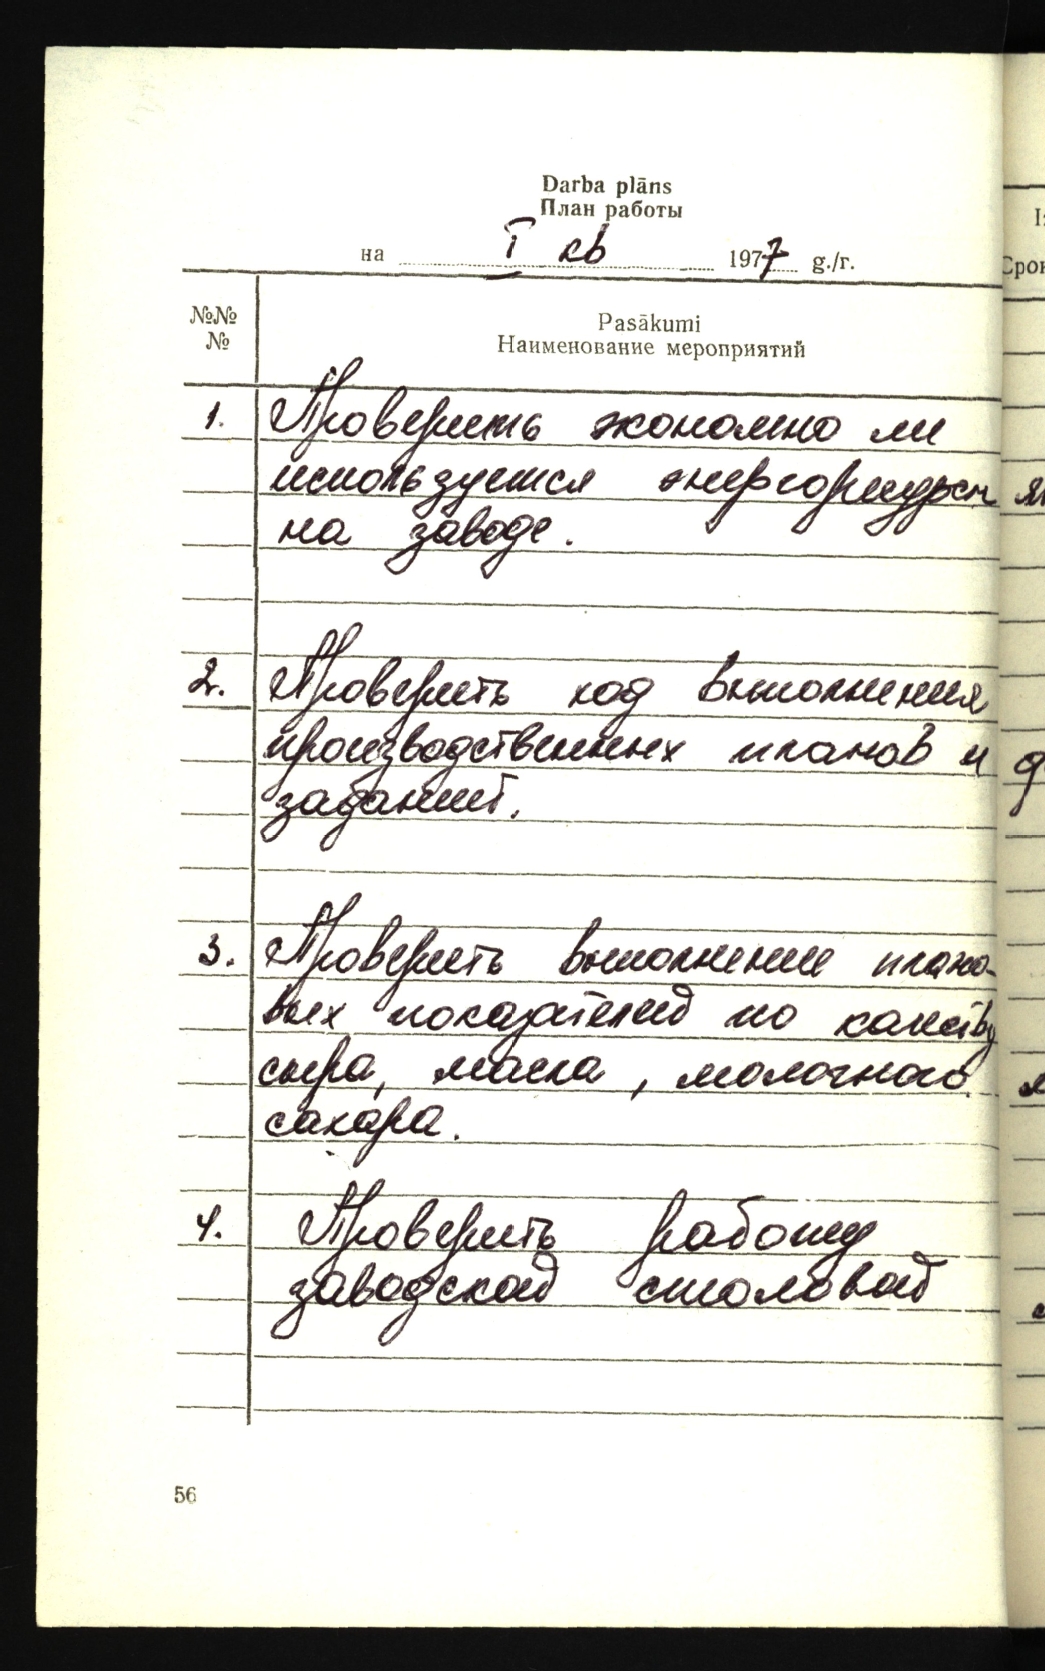 Darba plāns
План работы
на I кв 1977 g./г.
№№
№
Pasākumi
Наименование мероприятий
1. Проверить экономно ли
используется энергоресурсы
на заводе.
2. Проверить ход выполнения
производственных планов и
заданий.
3. Проверить выполнение плано-
вых показателей по качеству
сыра, масла, молочного
сахара.
4. Проверить работу
заводской столовой
56
Срок